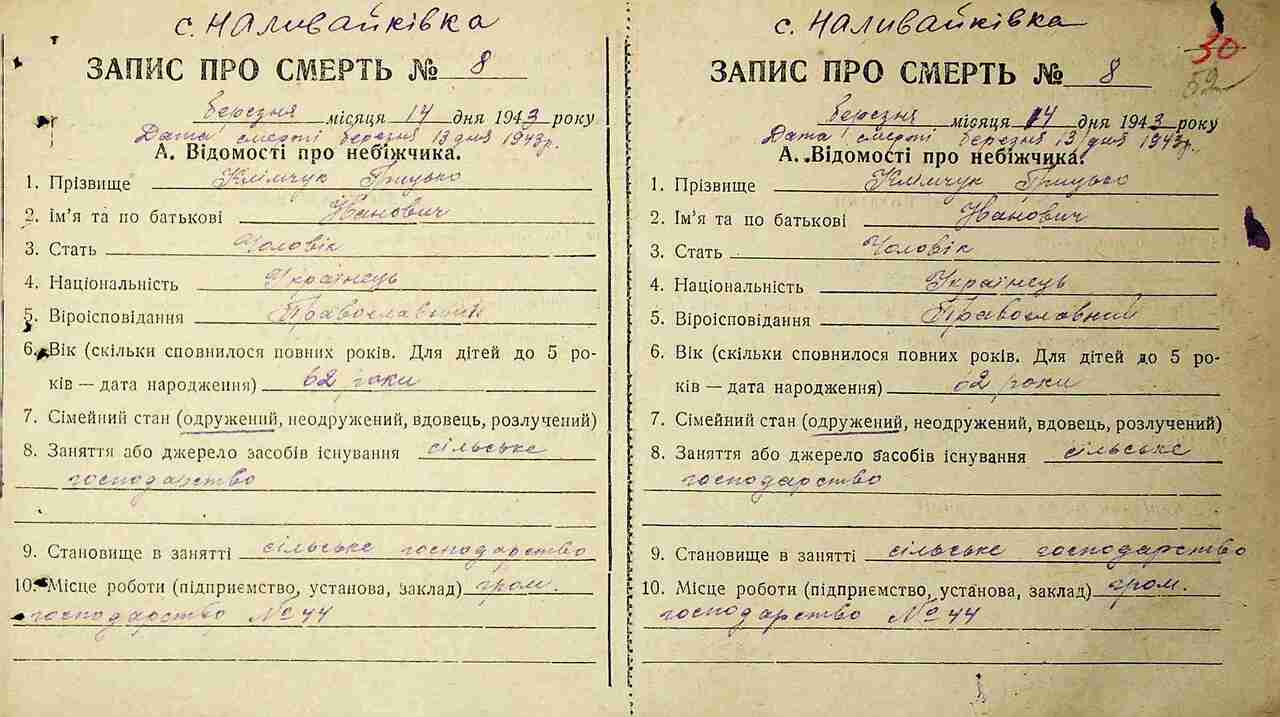 с. Наливайківка
ЗАПИС ПРО СМЕРТЬ № 8
березня місяця 14 дня 1943 року
Дата смерті березня 13 дня 1943 р.
А. Відомості про небіжчика.
1. Прізвище Клімчук Грицько
2. Ім'я та по батькові Іванович
3. Стать Чоловік
4. Національність Українець
5. Віроісповідання Православний
6. Вік (скільки сповнилося повних років. Для дітей до 5 ро-
ків — дата народження) 62 роки
7. Сімейний стан (одружений, неодружений, вдовець, розлучений)
8. Заняття або джерело засобів існування сільське
господарство
9. Становище в занятті сільське господарство
10. Місце роботи (підприємство, установа, заклад) гром.
господарство № 44
с. Наливайківка
30
59
ЗАПИС ПРО СМЕРТЬ № 8
березня місяця 14 дня 1943 року
Дата смерті березня 13 дня 1943 р.
А. Відомості про небіжчика.
1. Прізвище Клімчук Грицько
2. Ім'я та по батькові Іванович
3. Стать Чоловік
4. Національність Українець
5. Віроісповідання Православний
6. Вік (скільки сповнилося повних років. Для дітей до 5 ро-
ків — дата народження) 62 роки
7. Сімейний стан (одружений, неодружений, вдовець, розлучений)
8. Заняття або джерело засобів існування сільське
господарство
9. Становище в занятті сільське господарство
10. Місце роботи (підприємство, установа, заклад) гром.
господарство № 44